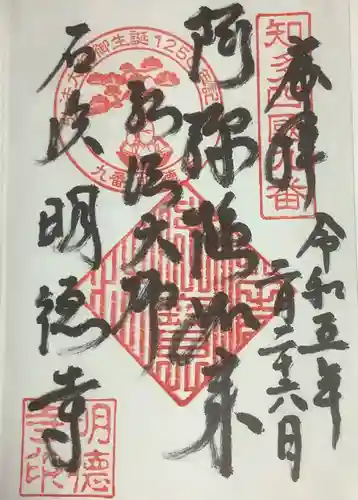 奉拝
令和五年
二月二十六日
知多四國九番
阿弥陀如来
弘法大師
御生誕1250年記
九番
石浜 明徳寺
明徳
寺印